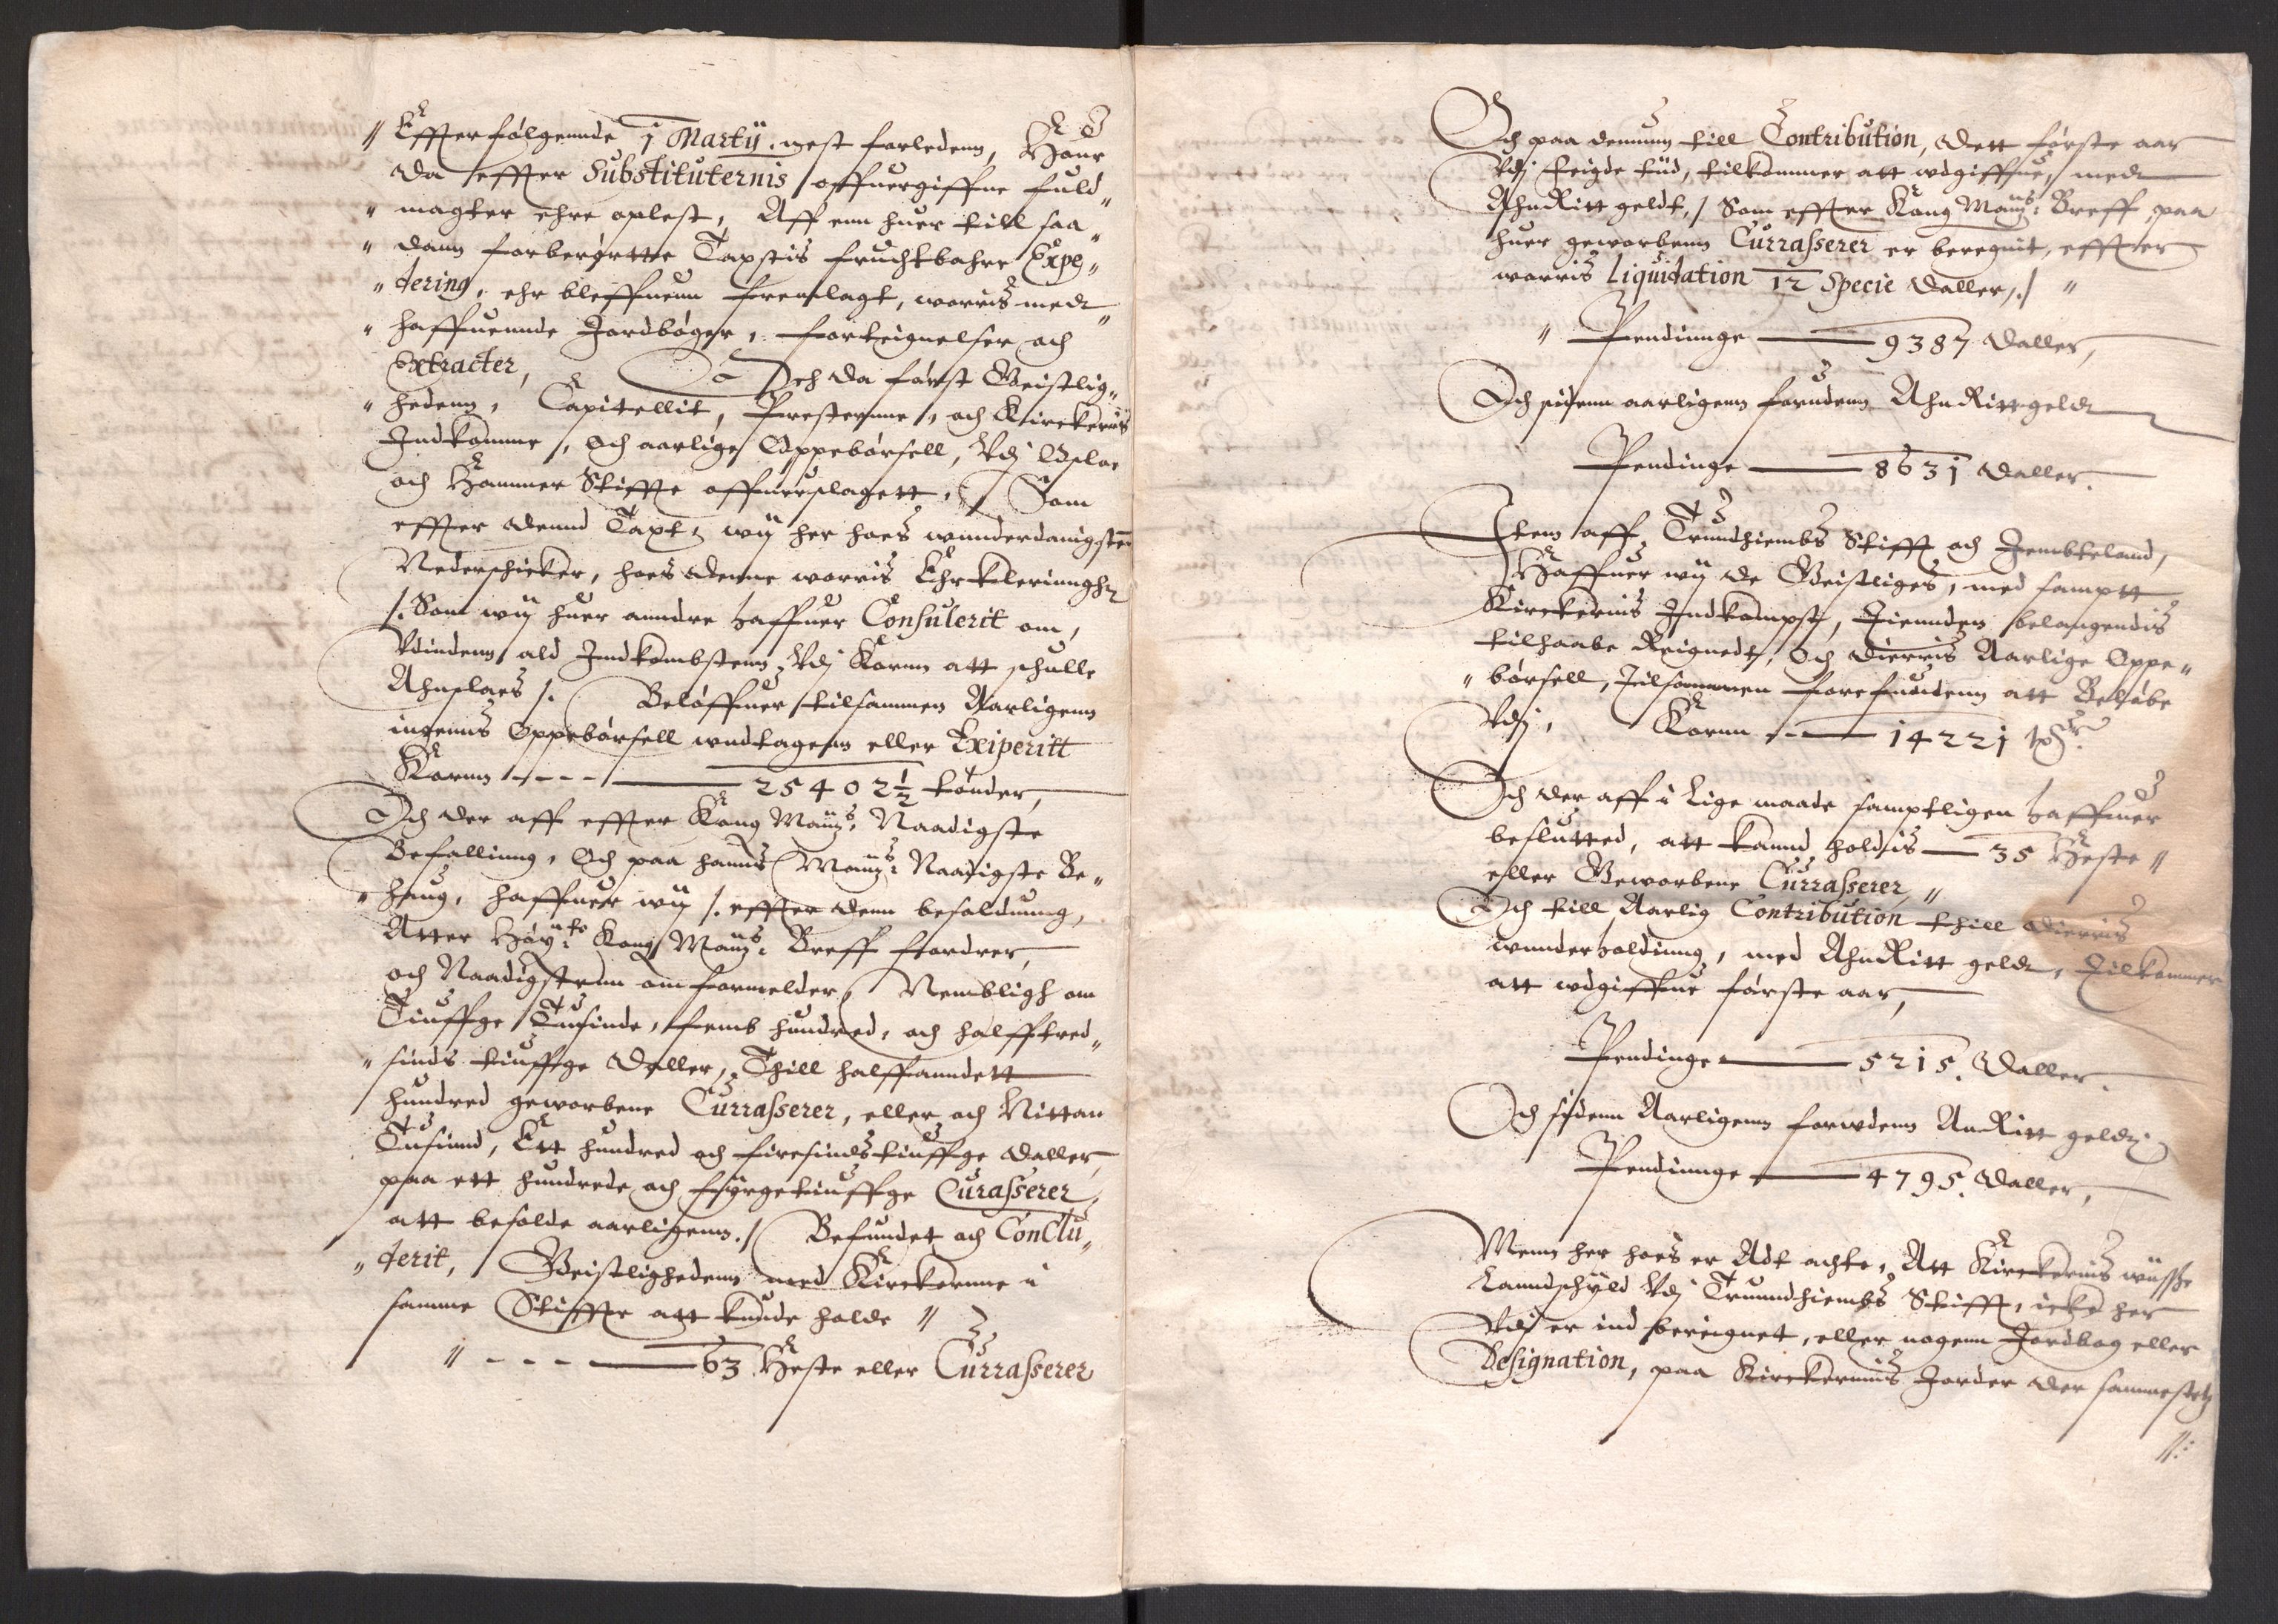 " Effterfølgennde 1 Martij. nest forledenn, Hour
da effter Substituternis offuergiffne fuld"
" magter ehre oplest, Aff enn huer till saa"
" dann forberørtte Taxtis fruchtbahre Expe"
" dering, ehr bleffuenn fremlagt, worris med"
" haffuennde Jordbøger, forteignelser och
Extracter, Och da først Geistlig"
" hedenn, Capitellit, Presternne, och Kirckerns
Indkomme, Och aarlige Oppebørsell, Vdj Opsloe
och Hammer Stiffte offuerslagett, Som
effter dennd Taxt, wij her hoes wunderdanigsten
Nederschicker, hoes denne worris Ehrkleringh
/. Som wij huer anndre haffuer Consulerit om,
Vdindenn ald Indkombstenn Vdj Kornn att schulle
Ahnslaes /. Beløffuer tilsammen Aarligenn
ingenns Oppebørsell wndtagenn eller Exiperitt
Kornn ---- 25402½ tønder,
Och der aff effter Kong Maytz: Naadigste
Befalling, Och paa hanns Maytz: Naadigste Be"
" haug, haffuer wij /. effter denn besoldning,
Atter Høybte: Kong Maytz: Breff fordrer,
och Naadigstenn om formelder, Nembligh om
Tiuffge Tusinde, femb hundred, och halfftred"
" sinds tiuffge daller, Thill halffanndett
hundred geworbene Currasserer, eller och Nittan
Tusinnd, Ett hundred och firesinds tiuffge daller,
paa ett hundrede och fyrgetiuffge Curasserer,
att besolde aarligenn./ Befundet och Conclu"
" derit, Geistlighedenn med Kirckernne i
samme Stiffte att kunde holde "
" ---- 63 Heste eller Currasserer
Och paa dennum till Contribution, Dett første aar
Vdj feigde tiid, tilkommer att wdgiffue, med
AhnRitt geldt, / Som effter Kong Maytz: Breff paa
huer geworbenn Currasserer er beregnit, effter
worris Liquidation 12 Specie daller, /. "
" Pendinnge 9387 daller,
Och sidenn aarligenn forudenn AhnRittgeldt
Pendinge 8631 daller.
Item aff Trundhiembs Stifft och Jembteland,
Haffuer wij de Geistliges, med samptt
Kirckernis Indkompst, Tiennden belangendis
tilhaabe Reignedt, Och dierris Aarlige Oppe"
" børsell, tilsammen forefundenn att Beløbe
Vdj, Kornn 14221 tdr
Och der aff i Lige maade samptligen haffuer
besluttned, att kannd holdis 35 Heste "
eller Geworbene Currasserer, "
Och till Aarlig Contribution thill dierris
wnnderholdinng, med AhnRitt geldt, Tilkommer
att wdgiffue første aar,
Pendinge 5215. daller.
Och sidenn Aarligenn forwdenn AnRitt geldt
Pendinnge 4795. daller,
Menn her hoes er Att achte, Att Kirckernis wisse
Lanndschyld Vdj Trunndhiembs Stifft, icke her
Vdj er ind bereignet, eller nogenn Jordbog eller
Designation, paa Kirckernnis Jorder der sammestetz
//: